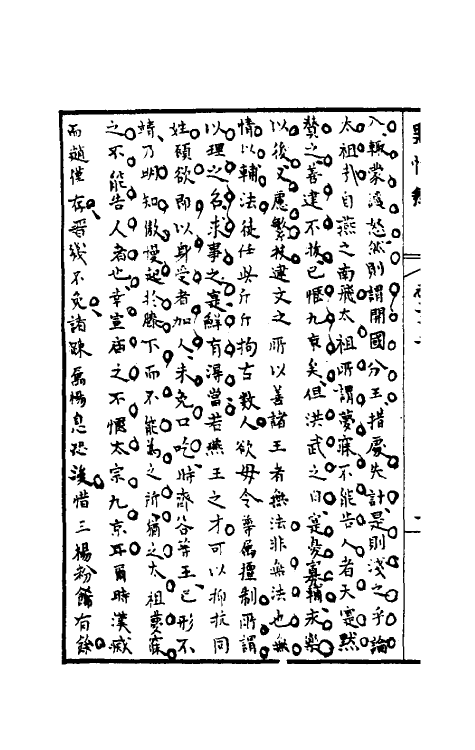 入輒蒙浚怒然則謂開國分王措處失計是則淺之乎論
太祖升自燕之南飛太祖所謂夢寐不能告人者天寔黙
贊之善建不拔已愜九京矣但洪武之日寔憂寡輔永樂
以後又慮繁枝建文之所以善諸王者無法非無法也無
情以輔法徒任此斤斤拘古數人欲毋令尊屬擅制所謂
以理之名求事之寔鮮有淂當若燕王之才可以抑抗同
姓頎欲即以身受者加人未免口吃時齊谷等王已形不
靖乃明知傲慢起於滕下而不能為之所猶之太祖夢寐
之不能告人者也幸宣廟之不愜太宗九京耳爾時漢戚
而趙僅存晋幾不免諸踈屬惕息恐後惜三楊粉餙有餘